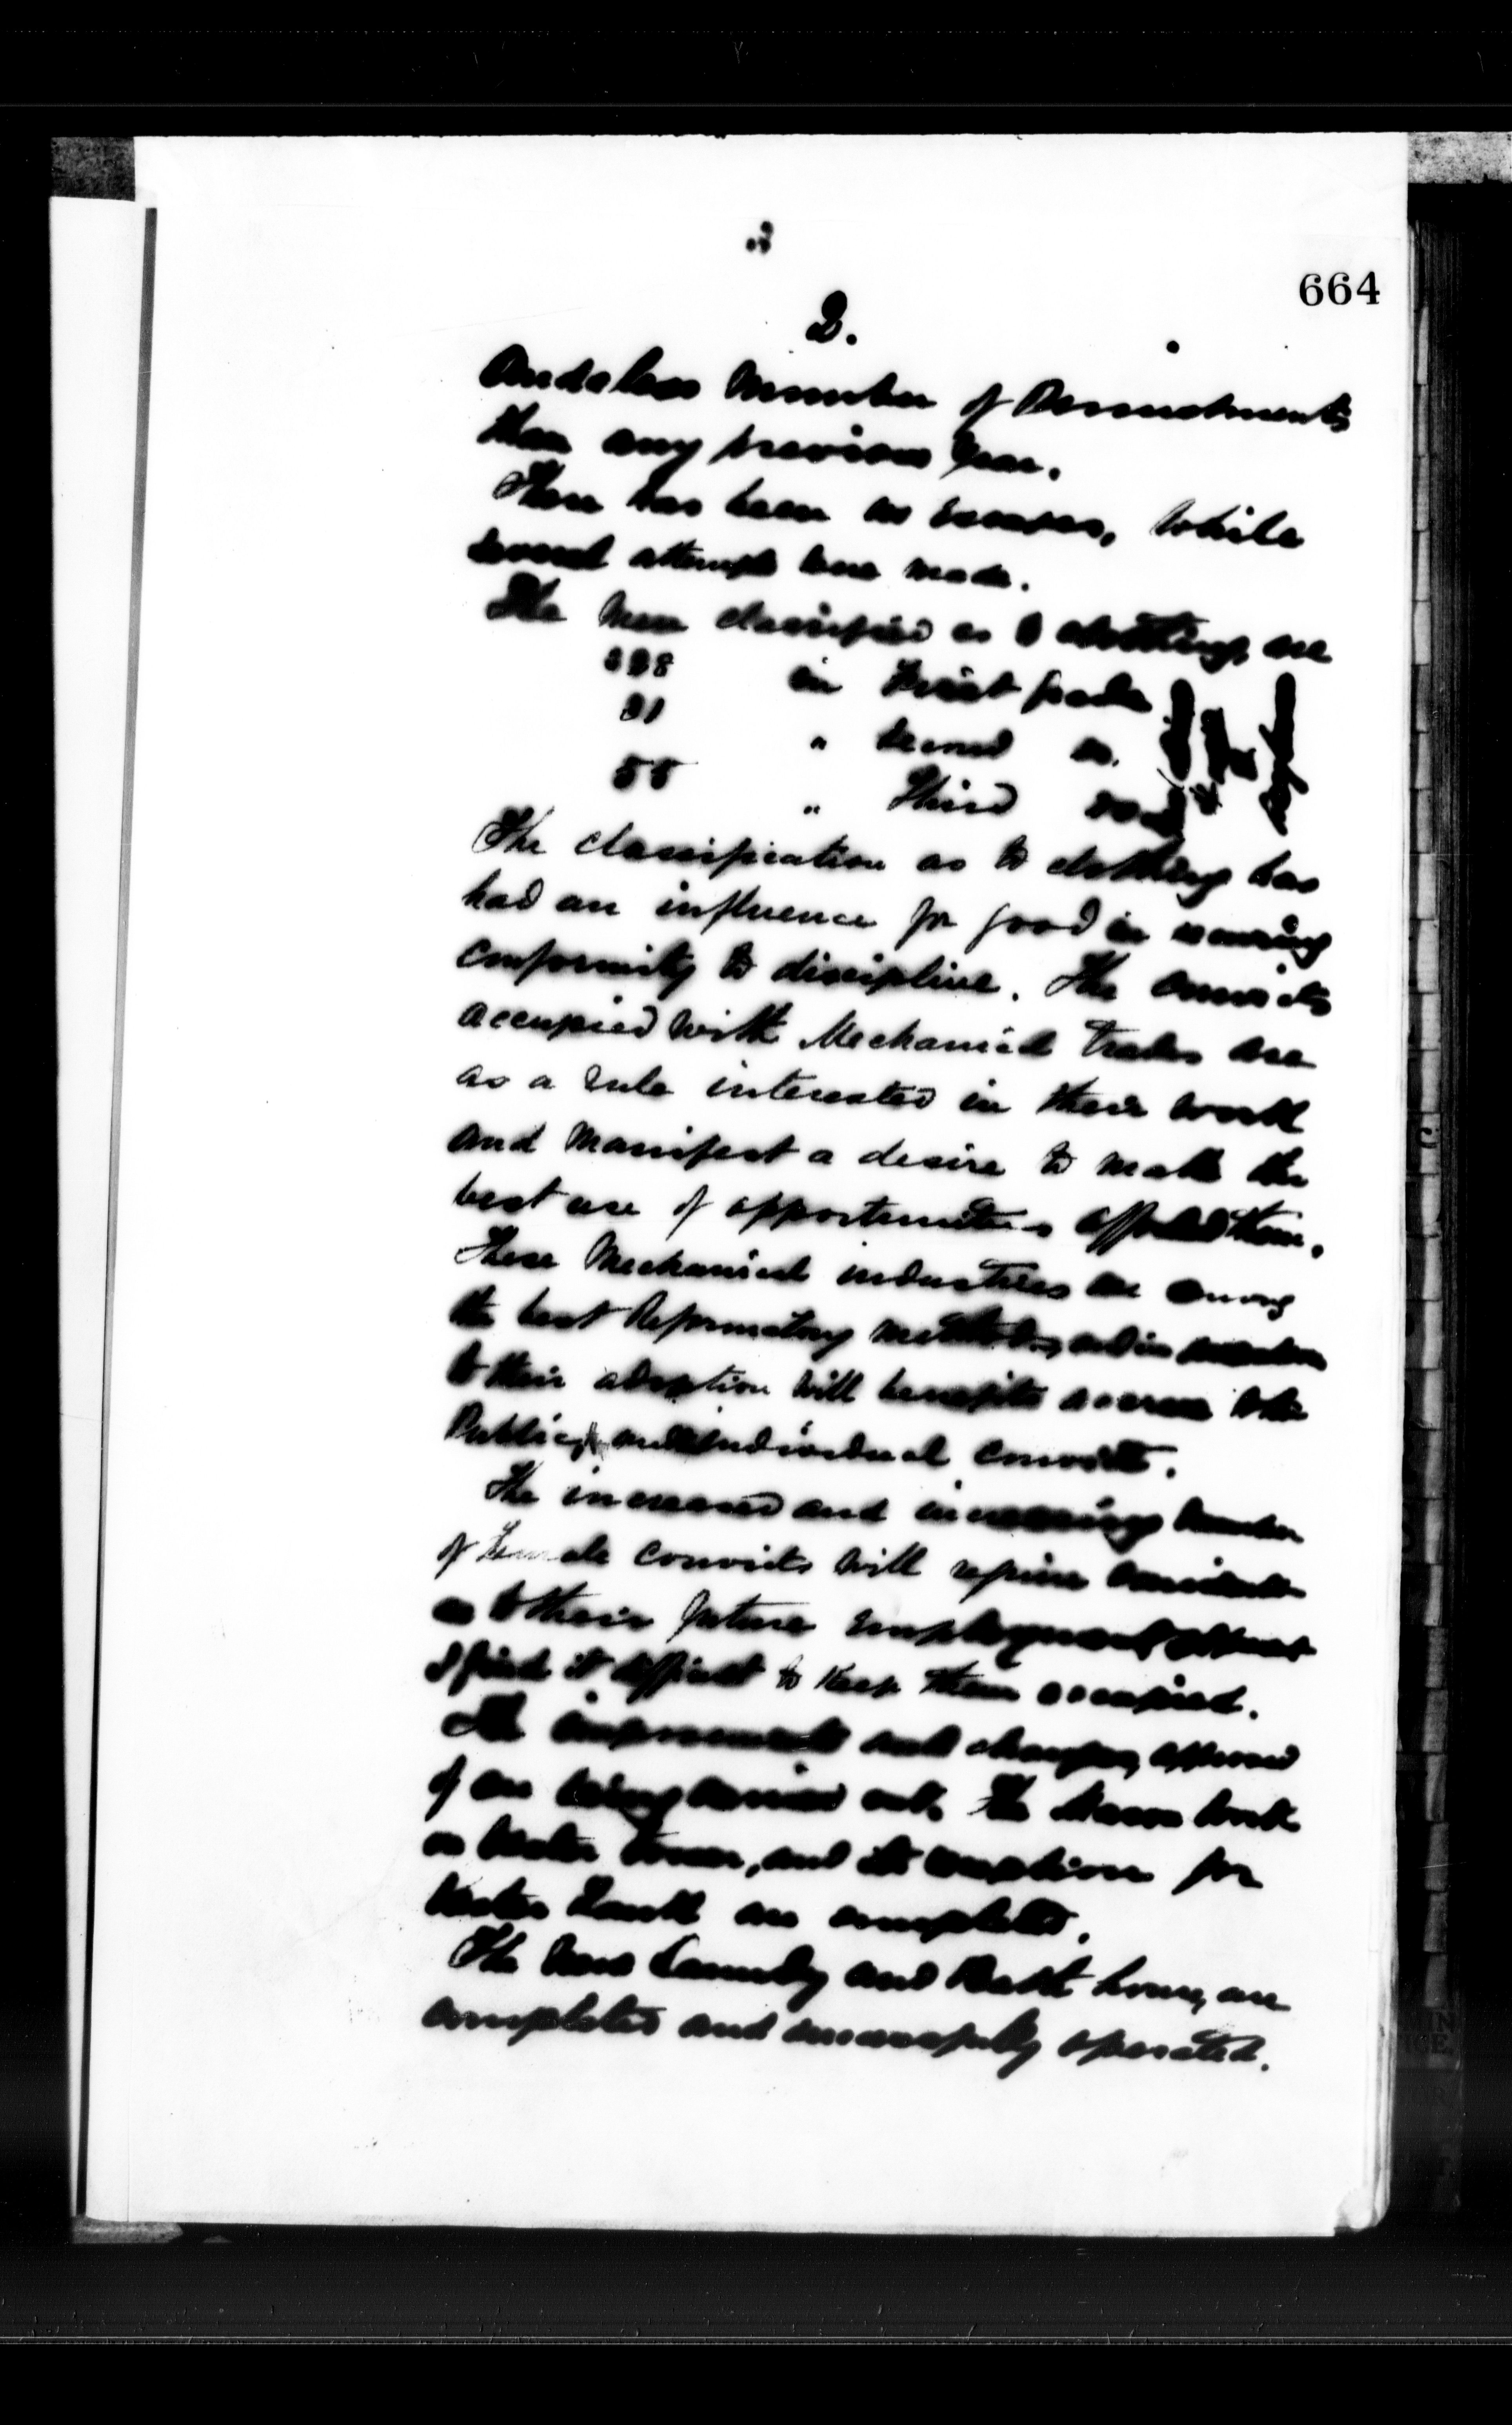 664
2.
and a less number of Punishments
than any previous year.
There has been no escapes, while
several attempts were made.
The men classified as to clothing, are
in First grade
31 " Second do.
55 " Third do
The classification as to clothing has
had an influence for good in securing
conformity to discipline. The convicts
occupied with Mechanical trades are
as a rule interested in their work
and manifest a desire to make the
best use of opportunities afforded them.
These Mechanical industries are among
the best Reformatory methods, and in
to their adoption will benefits accrue to the
Public, and individual convicts.
The increased and increasing number
of Female convicts will require
as to their future employment
I find it difficult to keep them occupied.
The improvements and changes, approved
of are being carried out. The work
on water tower, and its for
water Tank are completed.
The new Laundry and Bath house, are
completed and successfully operated.